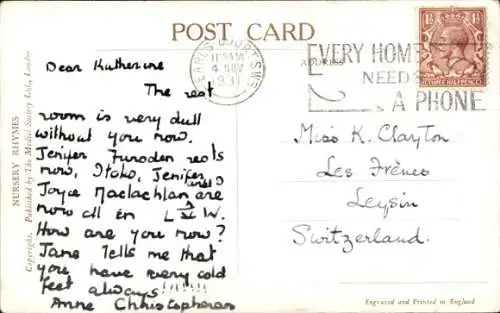 POST CARD
NURSERY RHYMES
Copyright. Published by The Medici Society Ltd., London
Dear Katherine
The rest
room is very dull
without you now.
Jenifer rests
now, Jenifer
and I
Joyce Maclachlan are
now all in L W.
How are you now?
Jane tells me that
you have very cold
feet always!!!!!!!
Anne Christopherson
EARLS COURT S.W.5
11 AM
4 NOV
1931
EVERY HOME
NEEDS
A PHONE
ADDRESS
THREE HALFPENCE
Miss K. Clayton
Les Frênes
Leysin
Switzerland.
Engraved and Printed in England